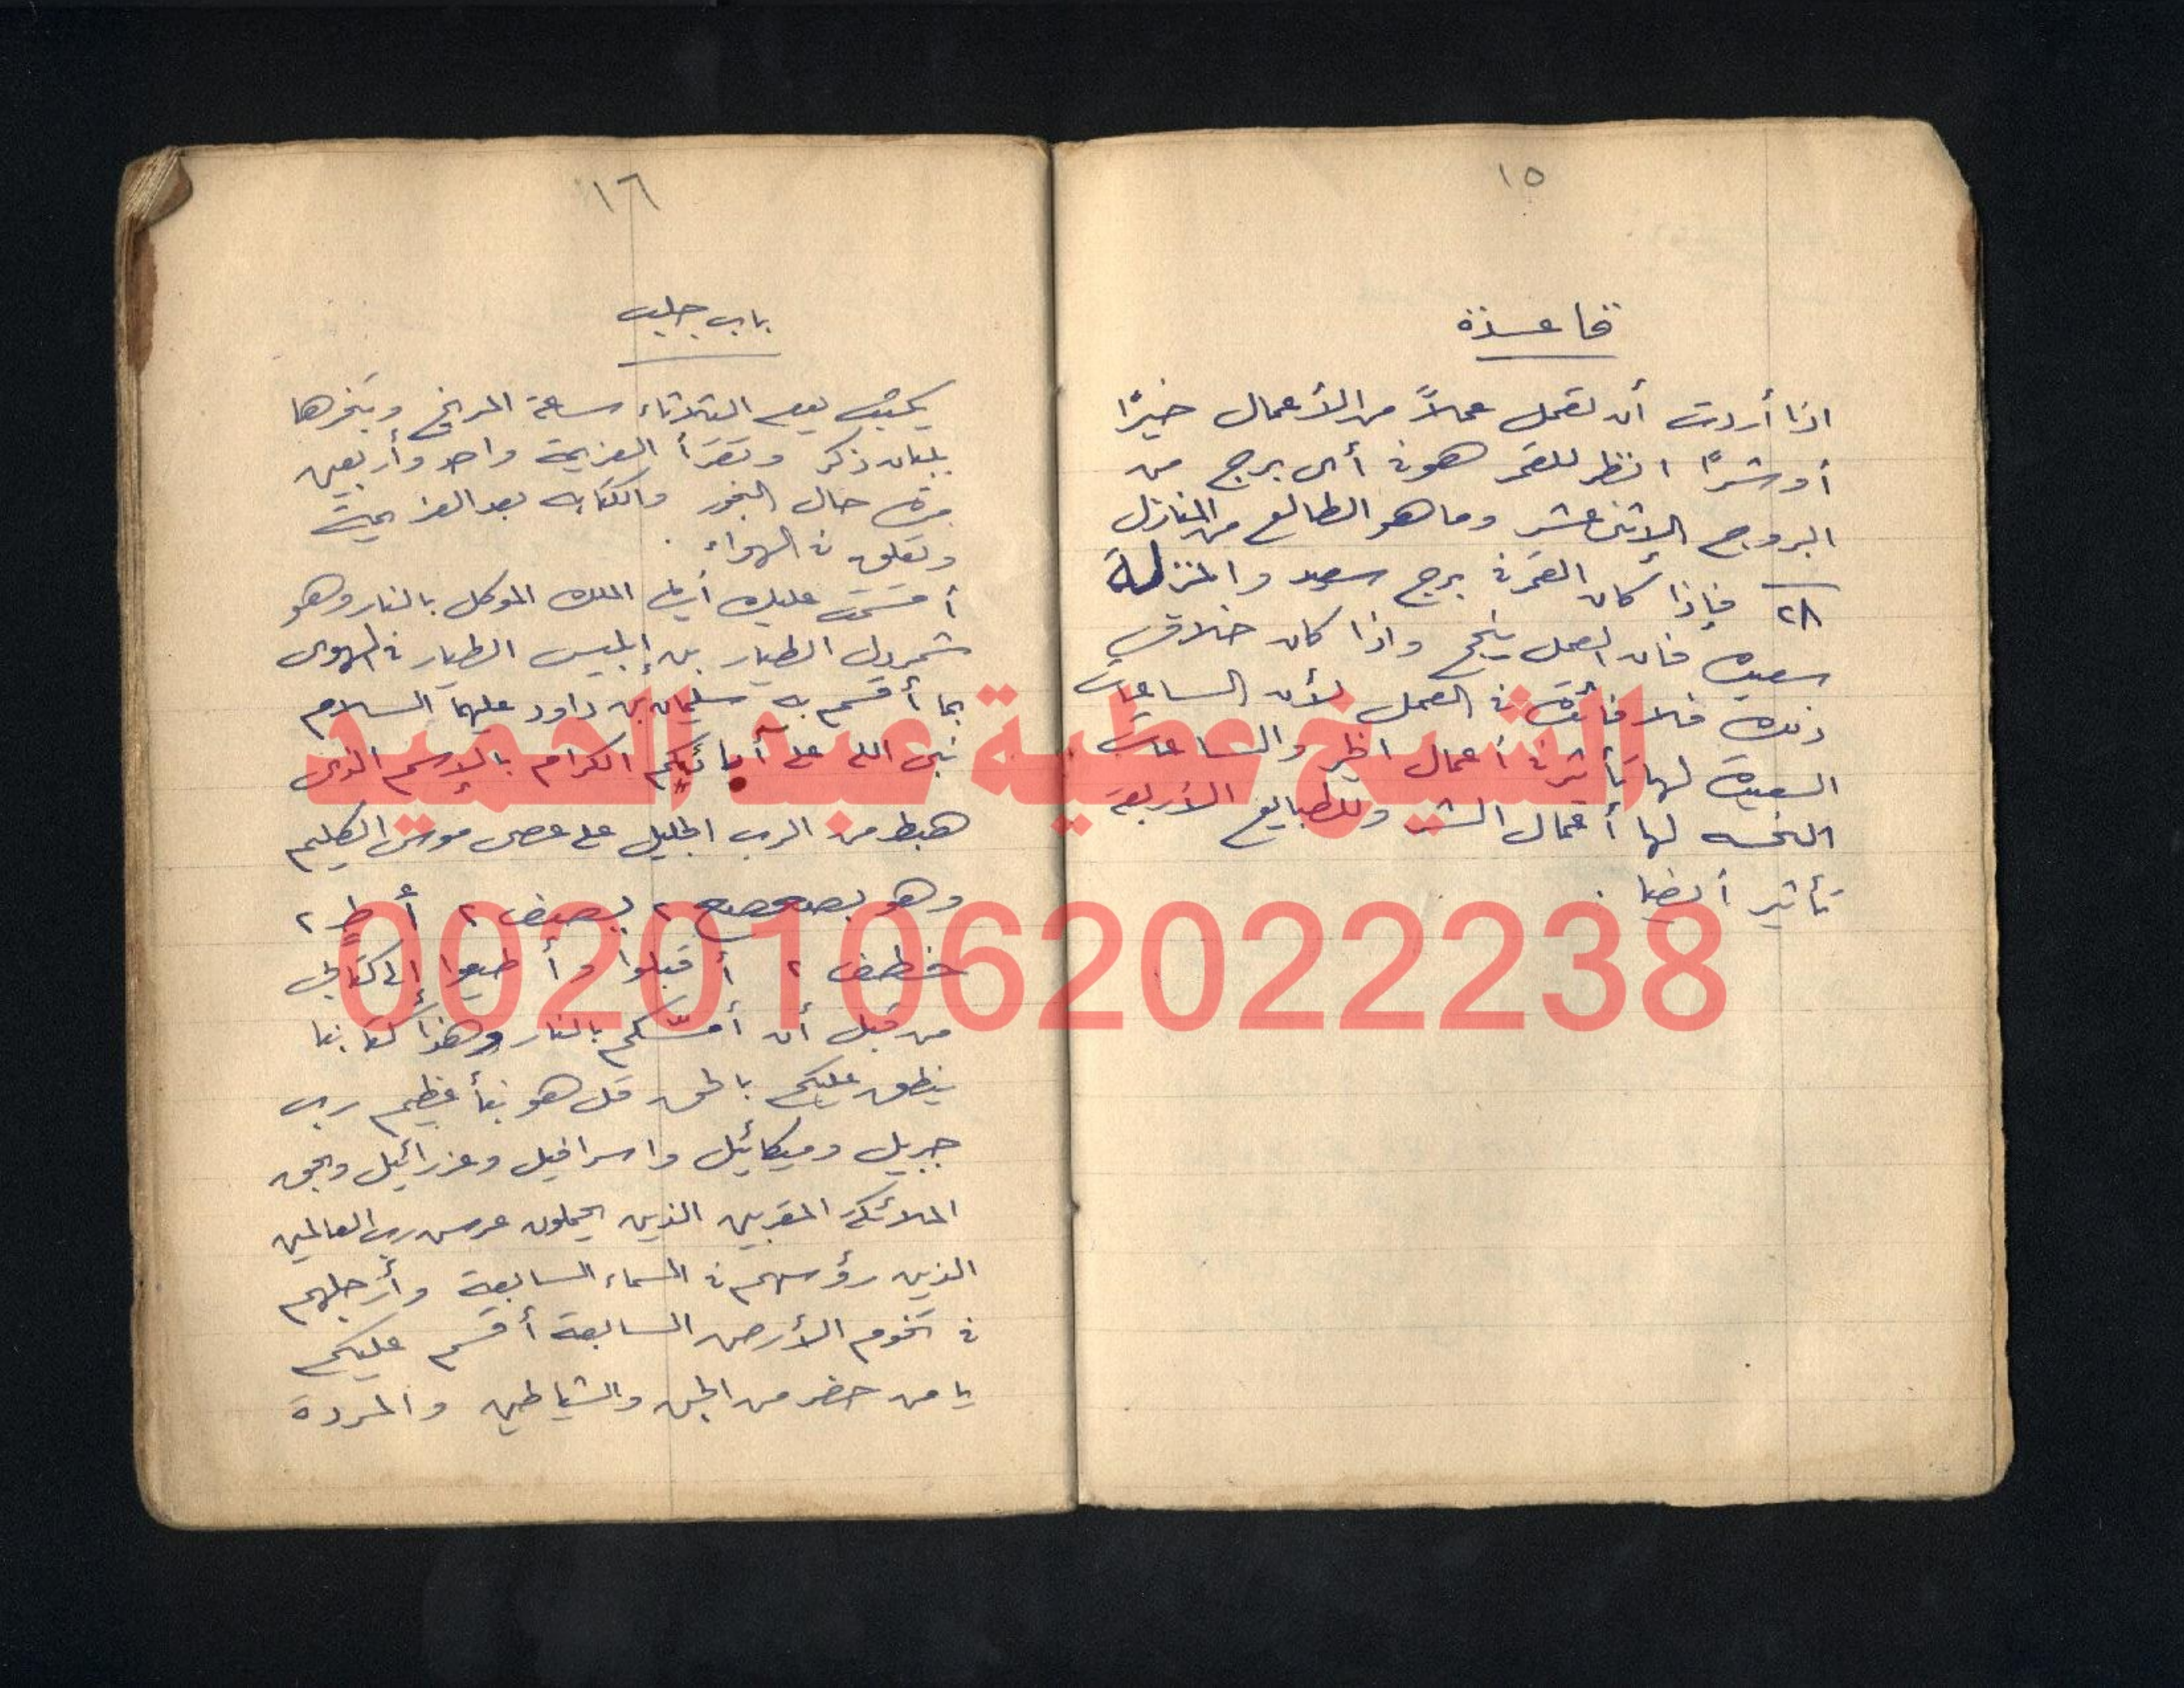 ١٥
قاعدة
اذا أردت أن تعمل عملاً من الأعمال خيرًا
أو شرًا انظر للقمر هو فى أى برج من
البروج الإثنى عشر وما هو الطالع من المنازل
٢٨ فإذا كان القمر فى برج سعيد والمنزلة
سعيده فان العمل ينجح واذا كان خلاف
ذلك فلا فائدة فى العمل لأن الساعات
السعيدة لها تأثير فى أعمال الخير والساعات
النحسه لها أعمال الشر وللطبايع الأربعة
تأثير أيضا .
١٦
باب جلب
يكتب يوم الثلاثاء ساعة المريخ وتبخرها
بلبان ذكر وتقرأ العزيمة واحد وأربعين
مرة حال البخور والكتابه بعد العزيمة
وتعلق فى الهواء .
أقسمت عليك أيها الملك الموكل بالنار وهو
شمردل الطيار بن إبليس الطيار فى الهوى
بما أقسم به سليمان بن داود عليهما السلام
نبى الله على آبائكم الكرام بالإسم الذى
هبط من الرب الجليل على عصى موسى الكليم
وهو بصعصع ٢ بصنف ٢ أط ٢
خطف ٢ أقبلوا وأطيعوا إلى كتابى
من قبل أن أمسكم بالنار وهذا كتابنا
ينطق عليكم بالحق قل هو نبأ عظيم رب
جبريل وميكائيل واسرافيل وعزرائيل وبحق
الملائكة المقربين الذين يحملون عرش رب العالمين
الذين رؤسهم فى السماء السابعة وأرجلهم
فى تخوم الأرض السابعة أقسم عليكم
يا من حضر من الجن والشياطين والمردة
الشيخ عطية عبد الحميد
00201062022238